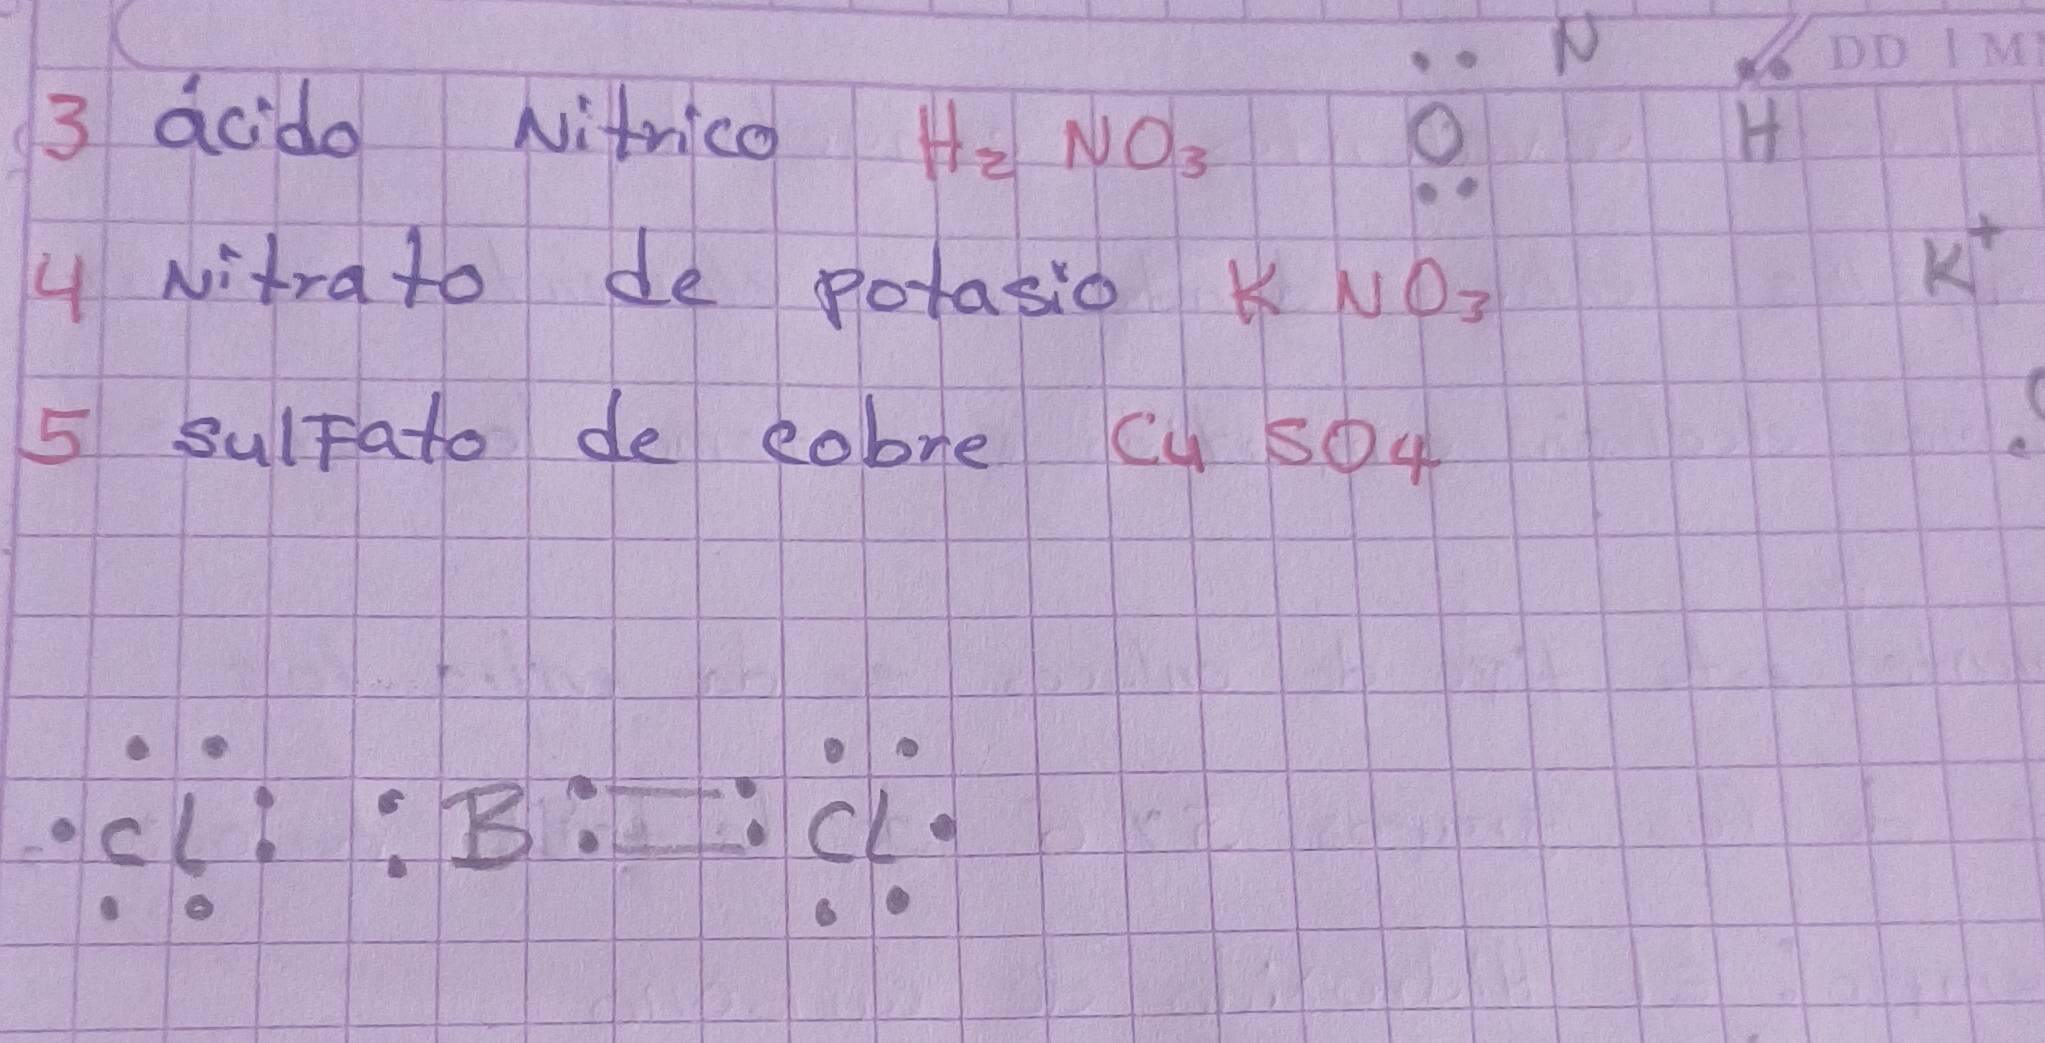 N DD / M
3 ácido Nitrico H₂ NO₃ O H
4 Nitrato de potasio K NO₃ K⁺
5 sulfato de cobre Cu SO4
Cl : : B : : Cl